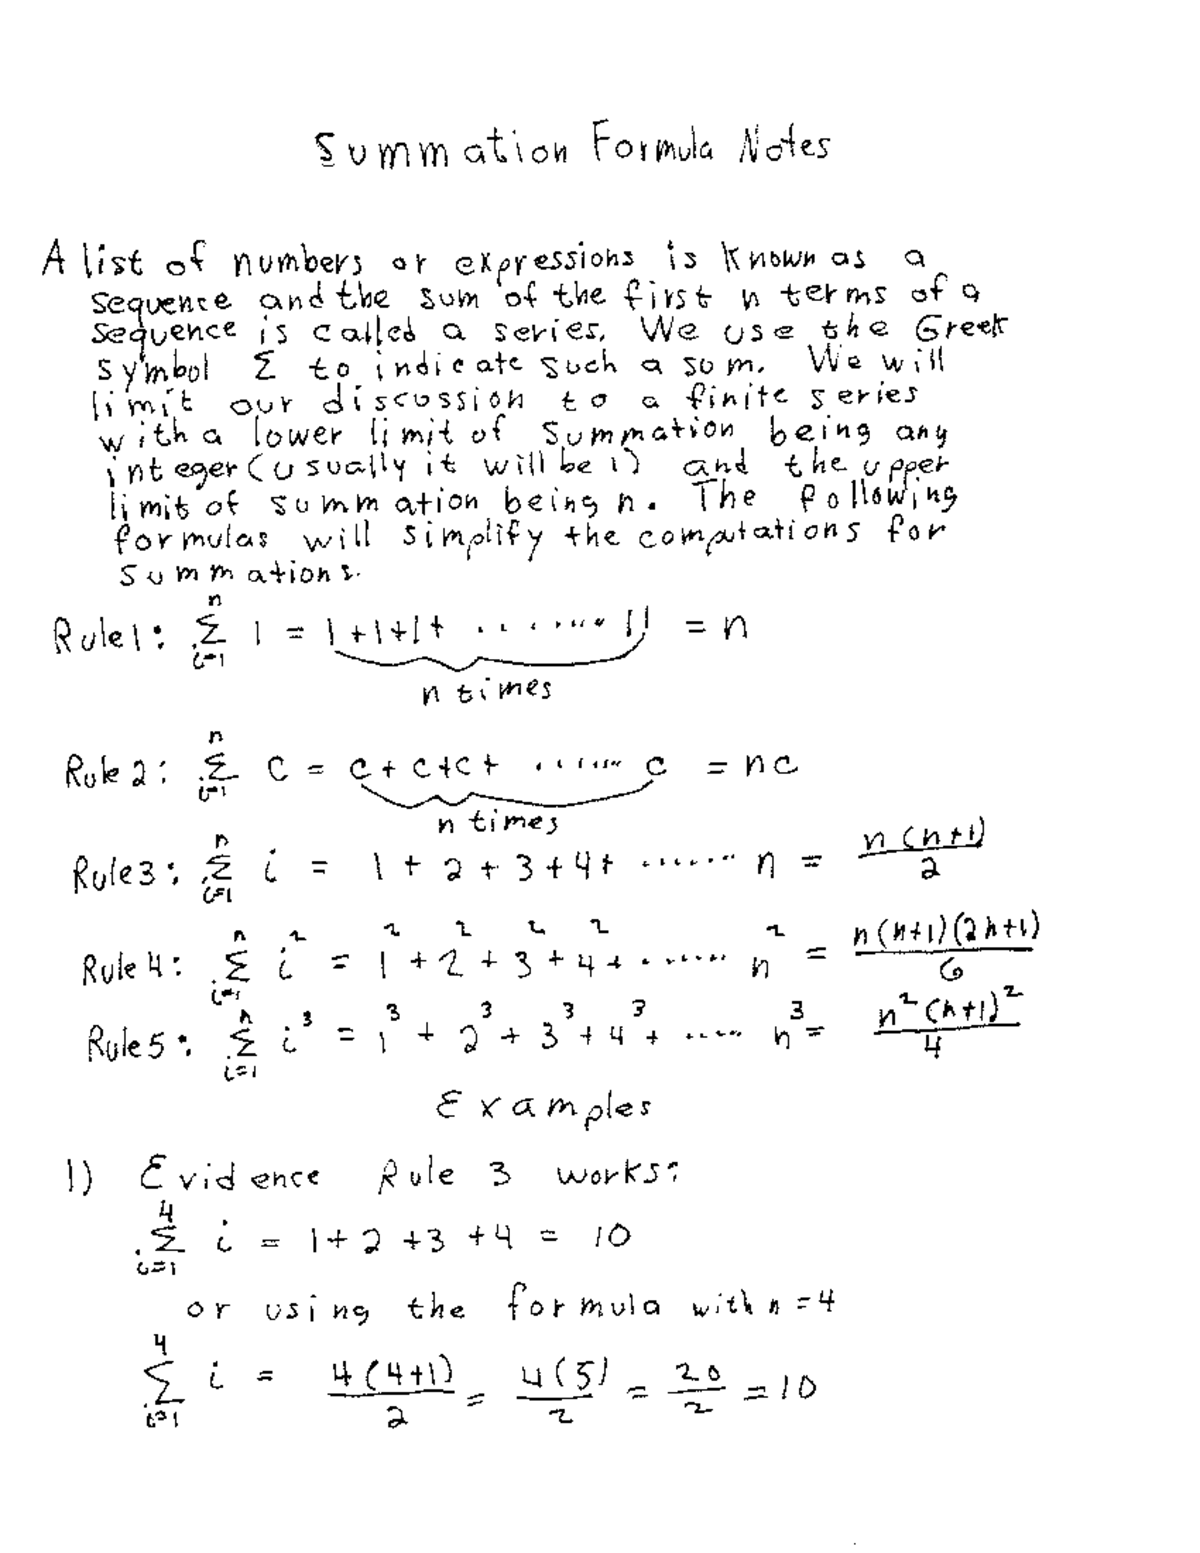 Summation Formula Notes
A list of numbers or expressions is known as a
sequence and the sum of the first n terms of a
sequence is called a series. We use the Greek
symbol Σ to indicate such a sum. We will
limit our discussion to a finite series
with a lower limit of summation being any
integer (usually it will be 1) and the upper
limit of summation being n. The following
formulas will simplify the computations for
summations.
Rule 1: \sum_{i=1}^{n} 1 = 1+1+1+ ........ 1 = n
n times
Rule 2: \sum_{i=1}^{n} c = c + c + c + ........ c = nc
n times
Rule 3: \sum_{i=1}^{n} i = 1 + 2 + 3 + 4 + ........ n = \frac{n(n+1)}{2}
Rule 4: \sum_{i=1}^{n} i^2 = 1^2 + 2^2 + 3^2 + 4^2 + ........ n^2 = \frac{n(n+1)(2n+1)}{6}
Rule 5: \sum_{i=1}^{n} i^3 = 1^3 + 2^3 + 3^3 + 4^3 + ..... n^3 = \frac{n^2(n+1)^2}{4}
Examples
1) Evidence Rule 3 works:
\sum_{i=1}^{4} i = 1 + 2 + 3 + 4 = 10
or using the formula with n = 4
\sum_{i=1}^{4} i = \frac{4(4+1)}{2} = \frac{4(5)}{2} = \frac{20}{2} = 10